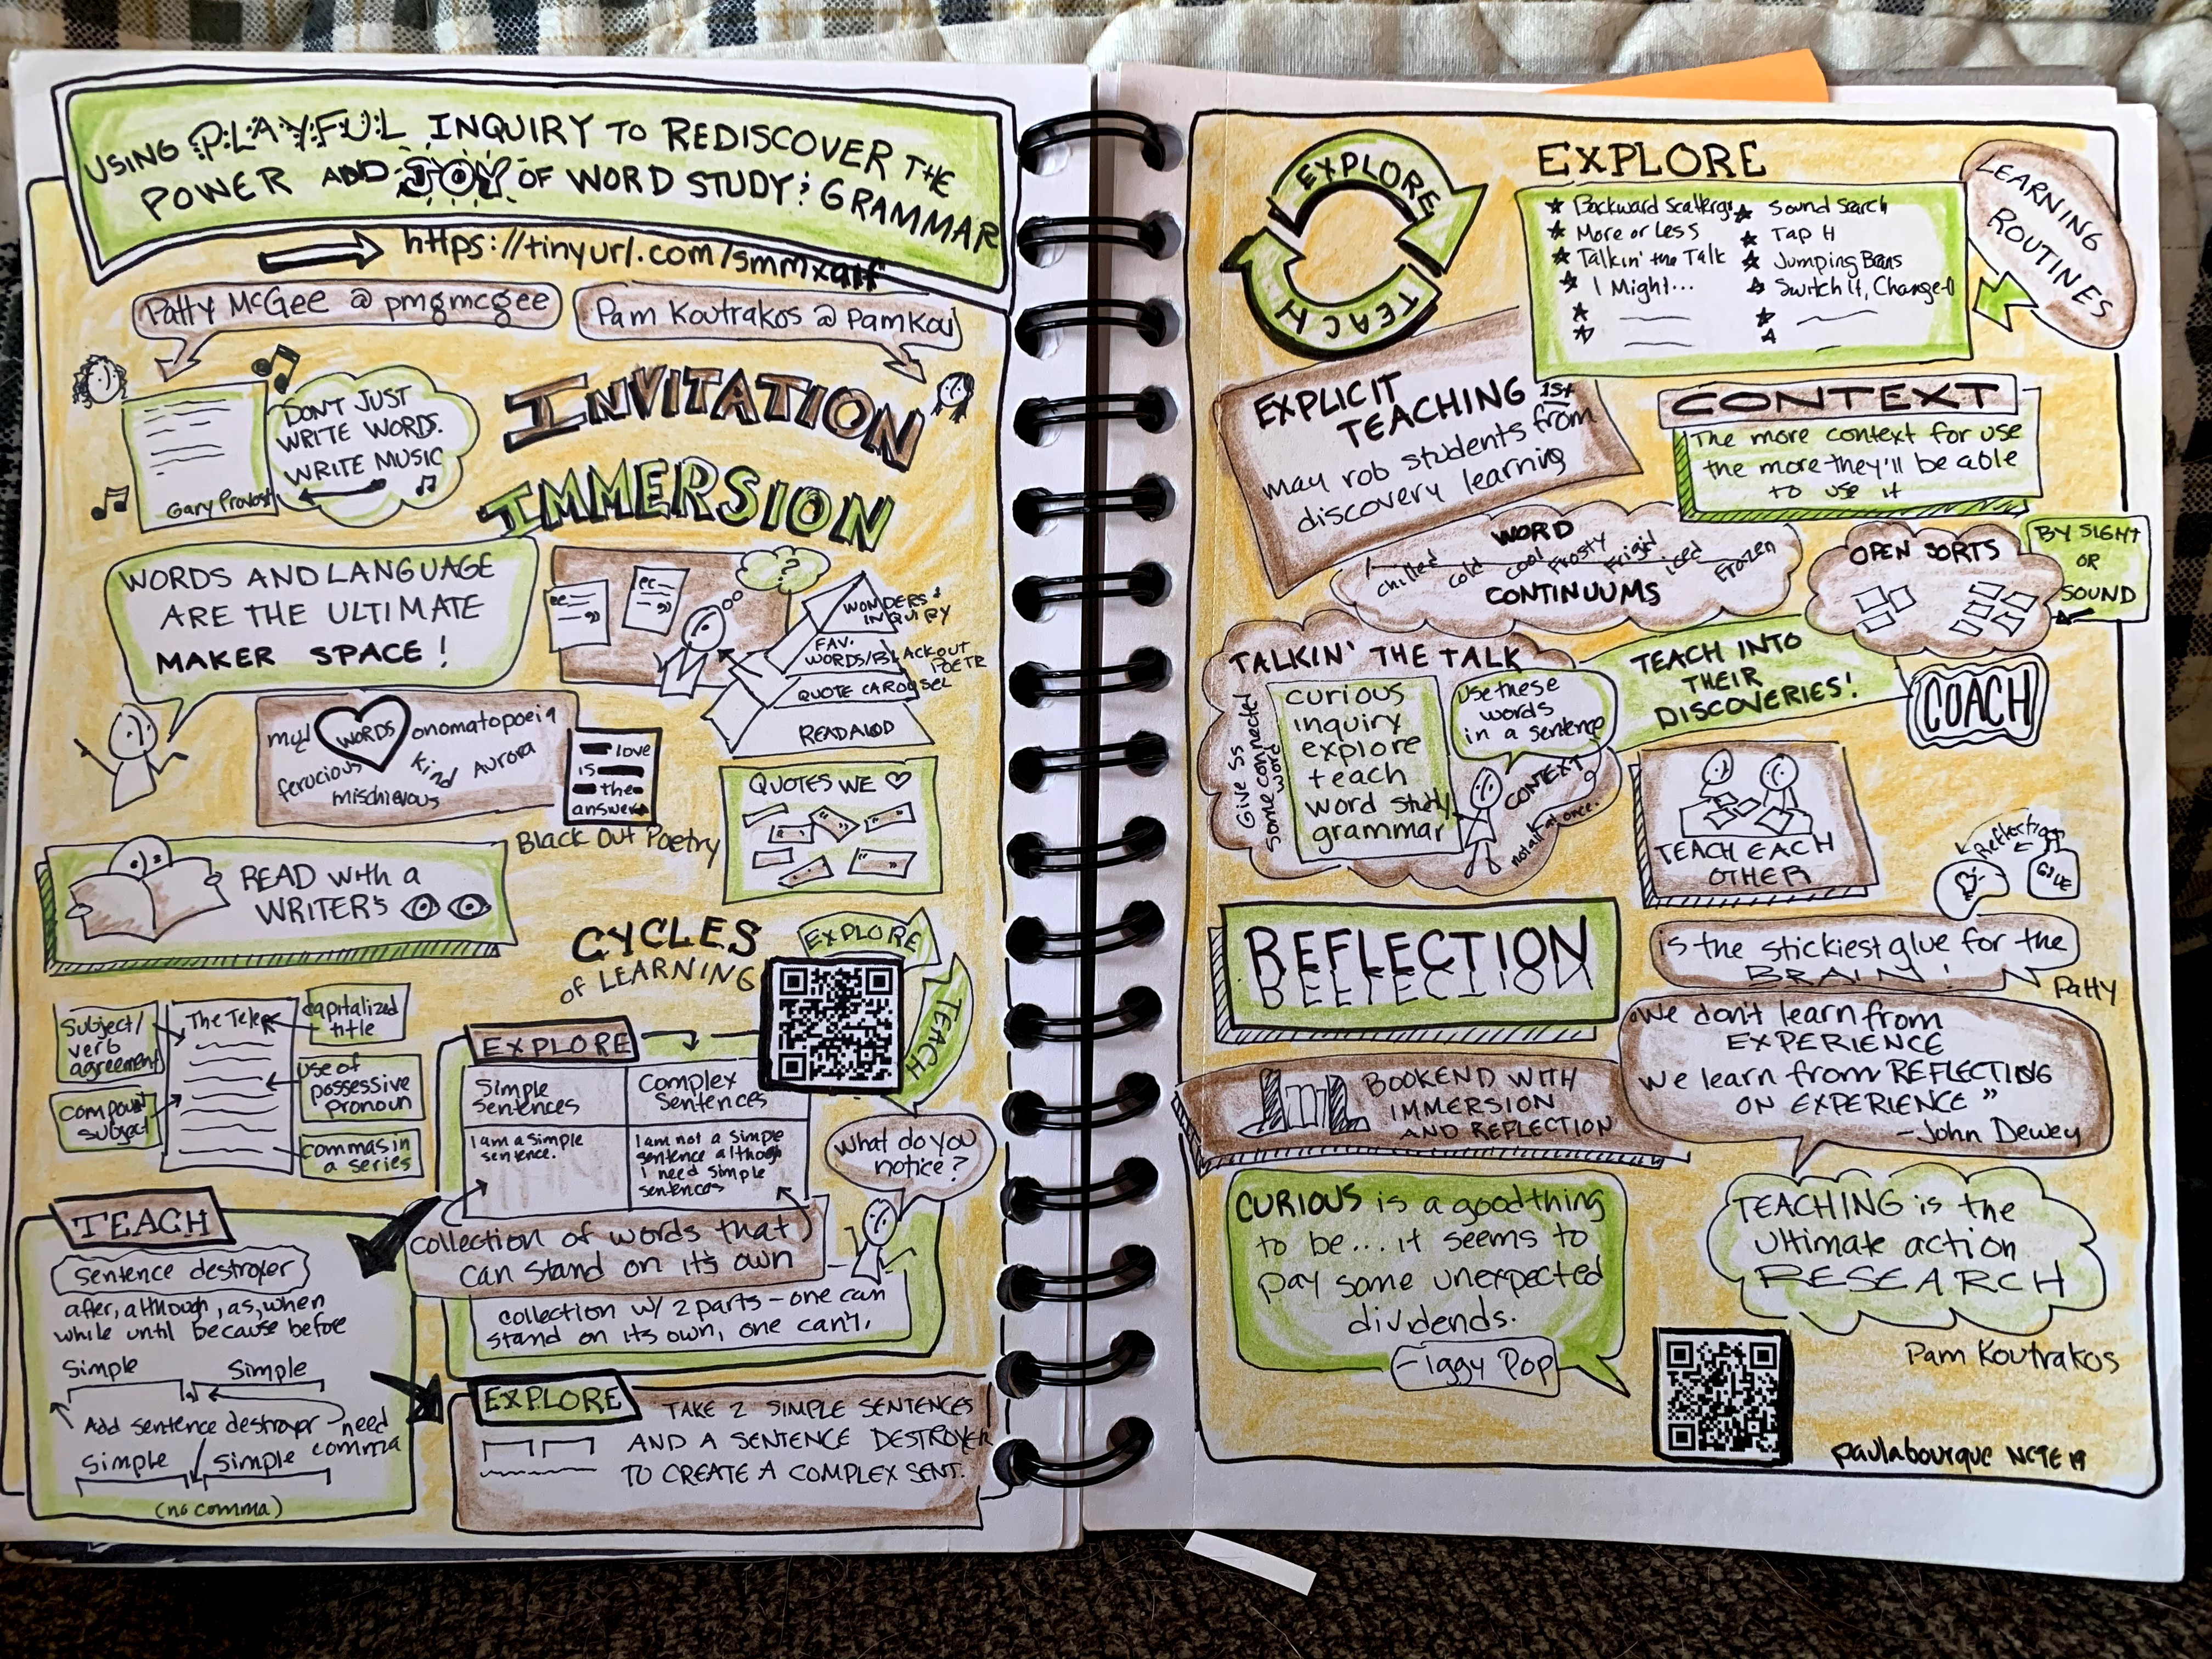 USING PLAYFUL INQUIRY TO REDISCOVER THE
POWER AND JOY OF WORD STUDY & GRAMMAR
https://tinyurl.com/smmxqif
Patty McGee @ pmgmcgee
Pam Koutrakos @ PamKou
DON'T JUST
WRITE WORDS.
WRITE MUSIC
Gary Provost
INVITATION
IMMERSION
WORDS AND LANGUAGE
ARE THE ULTIMATE
MAKER SPACE!
?
WONDERS &
INQUIRY
FAV.
WORDS/BLACKOUT
POETR
QUOTE CAROUSEL
READALOD
my
WORDS
onomatopoeia
ferocious
kind
Aurora
mischievous
love
is
the
answer
Black Out Poetry
QUOTES WE
READ with a
WRITER'S
CYCLES
OF LEARNING
EXPLORE
TEACH
Subject/
verb
agreement
compound
subject
The Tele
capitalized
title
use of
possessive
pronoun
commas in
a series
EXPLORE
Simple
Sentences
Complex
Sentences
I am a simple
sentence.
I am not a simple
sentence although
I need simple
sentences
What do you
notice?
collection of words that
can stand on it's own
collection w/ 2 parts - one can
stand on its own, one can't.
TEACH
Sentence destroyer
after, although, as, when
while until because before
Simple Simple
,
Add sentence destroyer need
comma
Simple Simple
(no comma)
EXPLORE
TAKE 2 SIMPLE SENTENCES
AND A SENTENCE DESTROYER
TO CREATE A COMPLEX SENT.
EXPLORE
TEACH
EXPLORE
Backward Scatterg
More or Less
Talkin' the Talk
I Might...
Sound Search
Tap It
Jumping Beans
Switch It, Change-O
LEARNING
ROUTINES
EXPLICIT
TEACHING 1st
may rob students from
discovery learning
CONTEXT
The more context for use
the more they'll be able
to use it
WORD
chilled cold cool Frosty Frigid iced Frozen
CONTINUUMS
OPEN SORTS
BY SIGHT
OR
SOUND
TALKIN' THE TALK
Give Ss
some connected
word
curious
inquiry
explore
teach
word study
grammar
Use these
words
in a sentence
CONTEXT
not all at once.
TEACH INTO
THEIR
DISCOVERIES!
COACH
TEACH EACH
OTHER
Reflection
GLUE
REFLECTION
REFLECTION
is the stickiest glue for the
BRAIN!
Patty
BOOKEND WITH
IMMERSION
AND REFLECTION
"We don't learn from
EXPERIENCE
We learn from REFLECTING
ON EXPERIENCE"
-John Dewey
CURIOUS is a good thing
to be... it seems to
pay some unexpected
dividends.
-Iggy Pop
TEACHING is the
ultimate action
RESEARCH
Pam Koutrakos
paulabourque NCTE 19